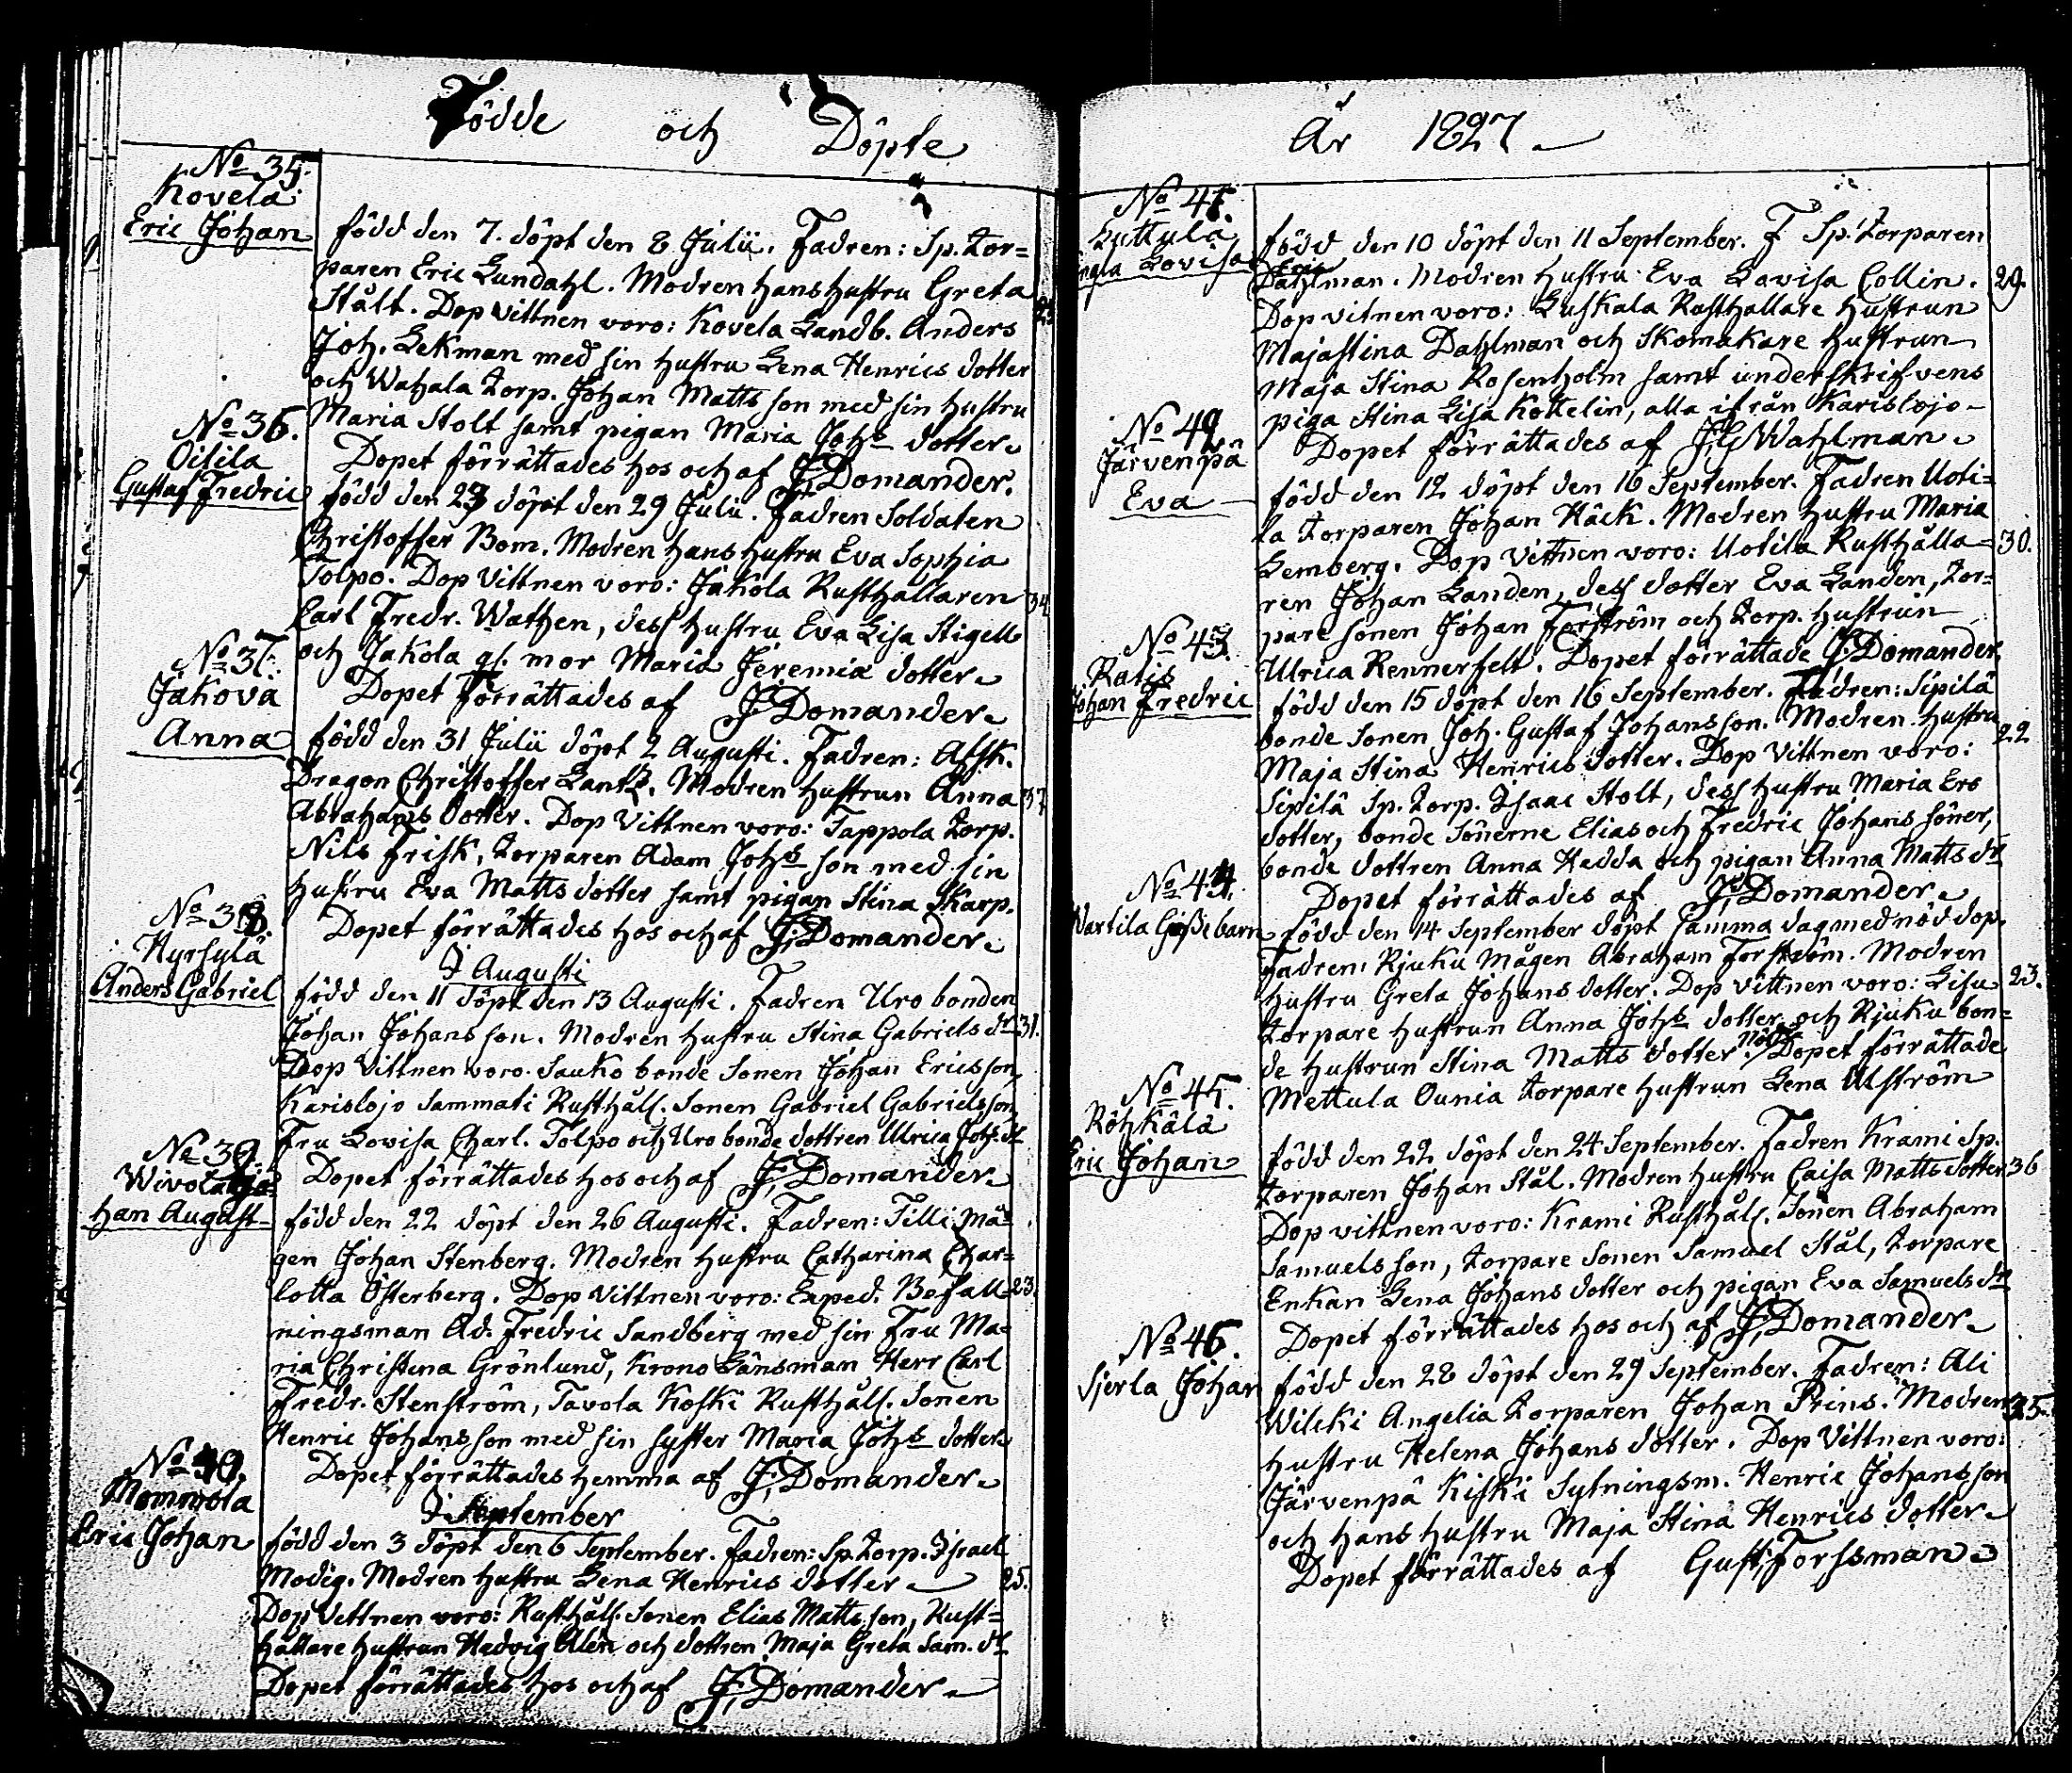 Födde och Döpte
No 35.
Kovela
Eric Johan
född den 7. döpt den 8 Julii. Fadren: Sp. Tor=
paren Eric Lundahl. Modren hans hustru Greta
Stålt. Dop vittnen voro: Kovela Landb. Anders
Joh. Lekman med sin hustru Lena Henrics dotter
och Wahala Torp. Johan Matts son med sin hustru
Maria Stolt samt pigan Maria Johs dotter
Dopet förrättades hos och af J. Domander.
No 36.
Oitila
Gustaf Fredric
född den 23 döpt den 29 Julii. Fadren Soldaten
Christoffer Bom. Modren hans hustru Eva Sophia
Tolpo. Dop vittnen voro: Jakola Rusthållaren 34
Carl Fredr. Wathen, dess hustru Eva Lisa Stigell
och Jakola gl. mor Maria Jeremiæ dotter
Dopet förrättades af J. Domander
No 37.
Jakova
Anna
född den 31 Julii döpt 2 Augusti. Fadren: Afsk.
Dragon Christoffer Lantz. Modren hustrun Anna 37
Abrahams dotter. Dop vittnen voro: Tappola Torp.
Nils Frisk, Torparen Adam Johs son med sin
hustru Eva Matts dotter samt pigan Stina Skarp.
Dopet förrättades hos och af J. Domander
I Augusti
No 38.
Hyrsylä
Anders Gabriel
född den 11 döpt den 13 Augusti. Fadren Uro bonden
Johan Johans son. Modren hustru Stina Gabriels dr 31.
Dop vittnen voro. Sauko bonde Sonen Johan Ericsson,
Karislojo Sammati Rusthåll. Sonen Gabriel Gabrielsson,
Fru Lovisa Charl. Tolpo och Uro bonde dottren Ulrica Johs dr
Dopet förrättades hos och af J. Domander
No 39.
Wivola Jo=
han August
född den 22 döpt den 26 Augusti. Fadren: Tilli Må=
gen Johan Stenberg. Modren hustru Catharina Char=
lotta Österberg. Dop vittnen voro: Exped. Befall= 23.
ningsman Ad. Fredric Sandberg med sin Fru Ma=
ria Christina Grönlund, Krono Länsman Herr Carl
Fredr. Stenström, Tavola Koski Rusthåll. Sonen
Henric Johans son med sin syster Maria Johs dotter
Dopet förrättades hemma af J. Domander
I September
No 40.
Mommola
Eric Johan
född den 3 döpt den 6 September. Fadren: Sp. Torp. Israel
Modig. Modren hustru Lena Henrics dotter 25.
Dop vittnen voro: Rusthåll. Sonen Elias Matts son, Rust=
hållare hustrun Hedvig Alén och dottren Maja Greta Sam. dr
Dopet förrättades hos och af J. Domander
År 1827
No 41.
Luttula
Lovisa
född den 10 döpt den 11 September. F Sp. Torparen
Eric
Dahlman. Modren hustru Eva Lovisa Collin. 29.
Dop vitnen voro: Luskala Rusthållare hustrun
Majastina Dahlman och Skomakare hustrun
Maja Stina Rosenholm samt underskrifvens
piga Stina Lisa Kottelin, alla ifrån Karislojo
Dopet förrättades af J G Wahlman
No 42
Järvenpä
Eva
född den 12 döpt den 16 September. Fadren Uoti=
la Torparen Johan Häck. Modren hustru Maria
Lemberg. Dop vittnen voro: Uotila Rusthålla= 30.
ren Johan Landen, dess dotter Eva Landen, Tor=
pare sonen Johan Forström och Torp. hustrun
Ulrica Rennerfelt. Dopet förrättade J. Domander.
No 43.
Ratis
Johan Fredric
född den 15 döpt den 16 September. Fadren: Sipilä
bonde Sonen Joh. Gustaf Johans son. Modren hustru 22
Maja Stina Henrics dotter. Dop vittnen voro:
Sipilä Sp. Torp. Isaac Stolt, dess hustru Maria Ers
dotter, bonde Sönerne Elias och Fredric Johans söner,
bonde dottren Anna Hedda och pigan Anna Matts dr
Dopet förrättades af J. Domander
No 44.
Wartila Gosse barn
född den 14 September döpt samma dag med nöd dop.
Fadren: Rjuku Mågen Abraham Forström. Modren
hustru Greta Johans dotter. Dop vittnen voro: Lisu 23.
Torpare hustrun Anna Johs dotter och Rjuku bon=
nöd
de hustrun Stina Matts dotter. Dopet förrättade
Mettula Ounia Torpare hustrun Lena Ulström
No 45.
Röhkälä
Eric Johan
född den 22 döpt den 24 September. Fadren Krami Sp.
Torparen Johan Stål. Modren hustru Caisa Matts dotter 36
Dop vittnen voro: Krami Rusthåll. Sonen Abraham
Samuels son, Torpare Sonen Samuel Stål, Torpare
Enkan Lena Johans dotter och pigan Eva Samuels dr
Dopet förrättades hos och af J. Domander
No 46.
Sjerla Johan
född den 28 döpt den 29 September. Fadren: Ali
Wileki Angelia Torparen Johan Prins. Modren 35.
hustru Helena Johans dotter. Dop vittnen voro:
Järvenpä Kiski Sytningsm. Henric Johans son
och hans hustru Maja Stina Henrics dotter
Dopet förrättades af Gust. Forssman